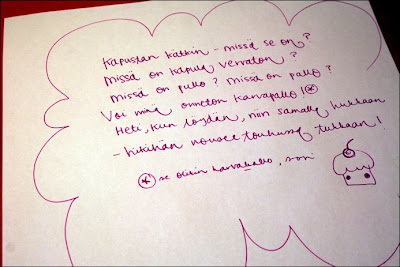 Kapustan kätkin – missä se on?
Missä on kapula verraton?
Missä on pullo? Missä on pallo?
Voi minä onneton karvapallo!*
Heti, kun löydän, niin samalla hukkaan
– hikihän nousee touhussa tukkaan!
* se olisin karvakallo, sori